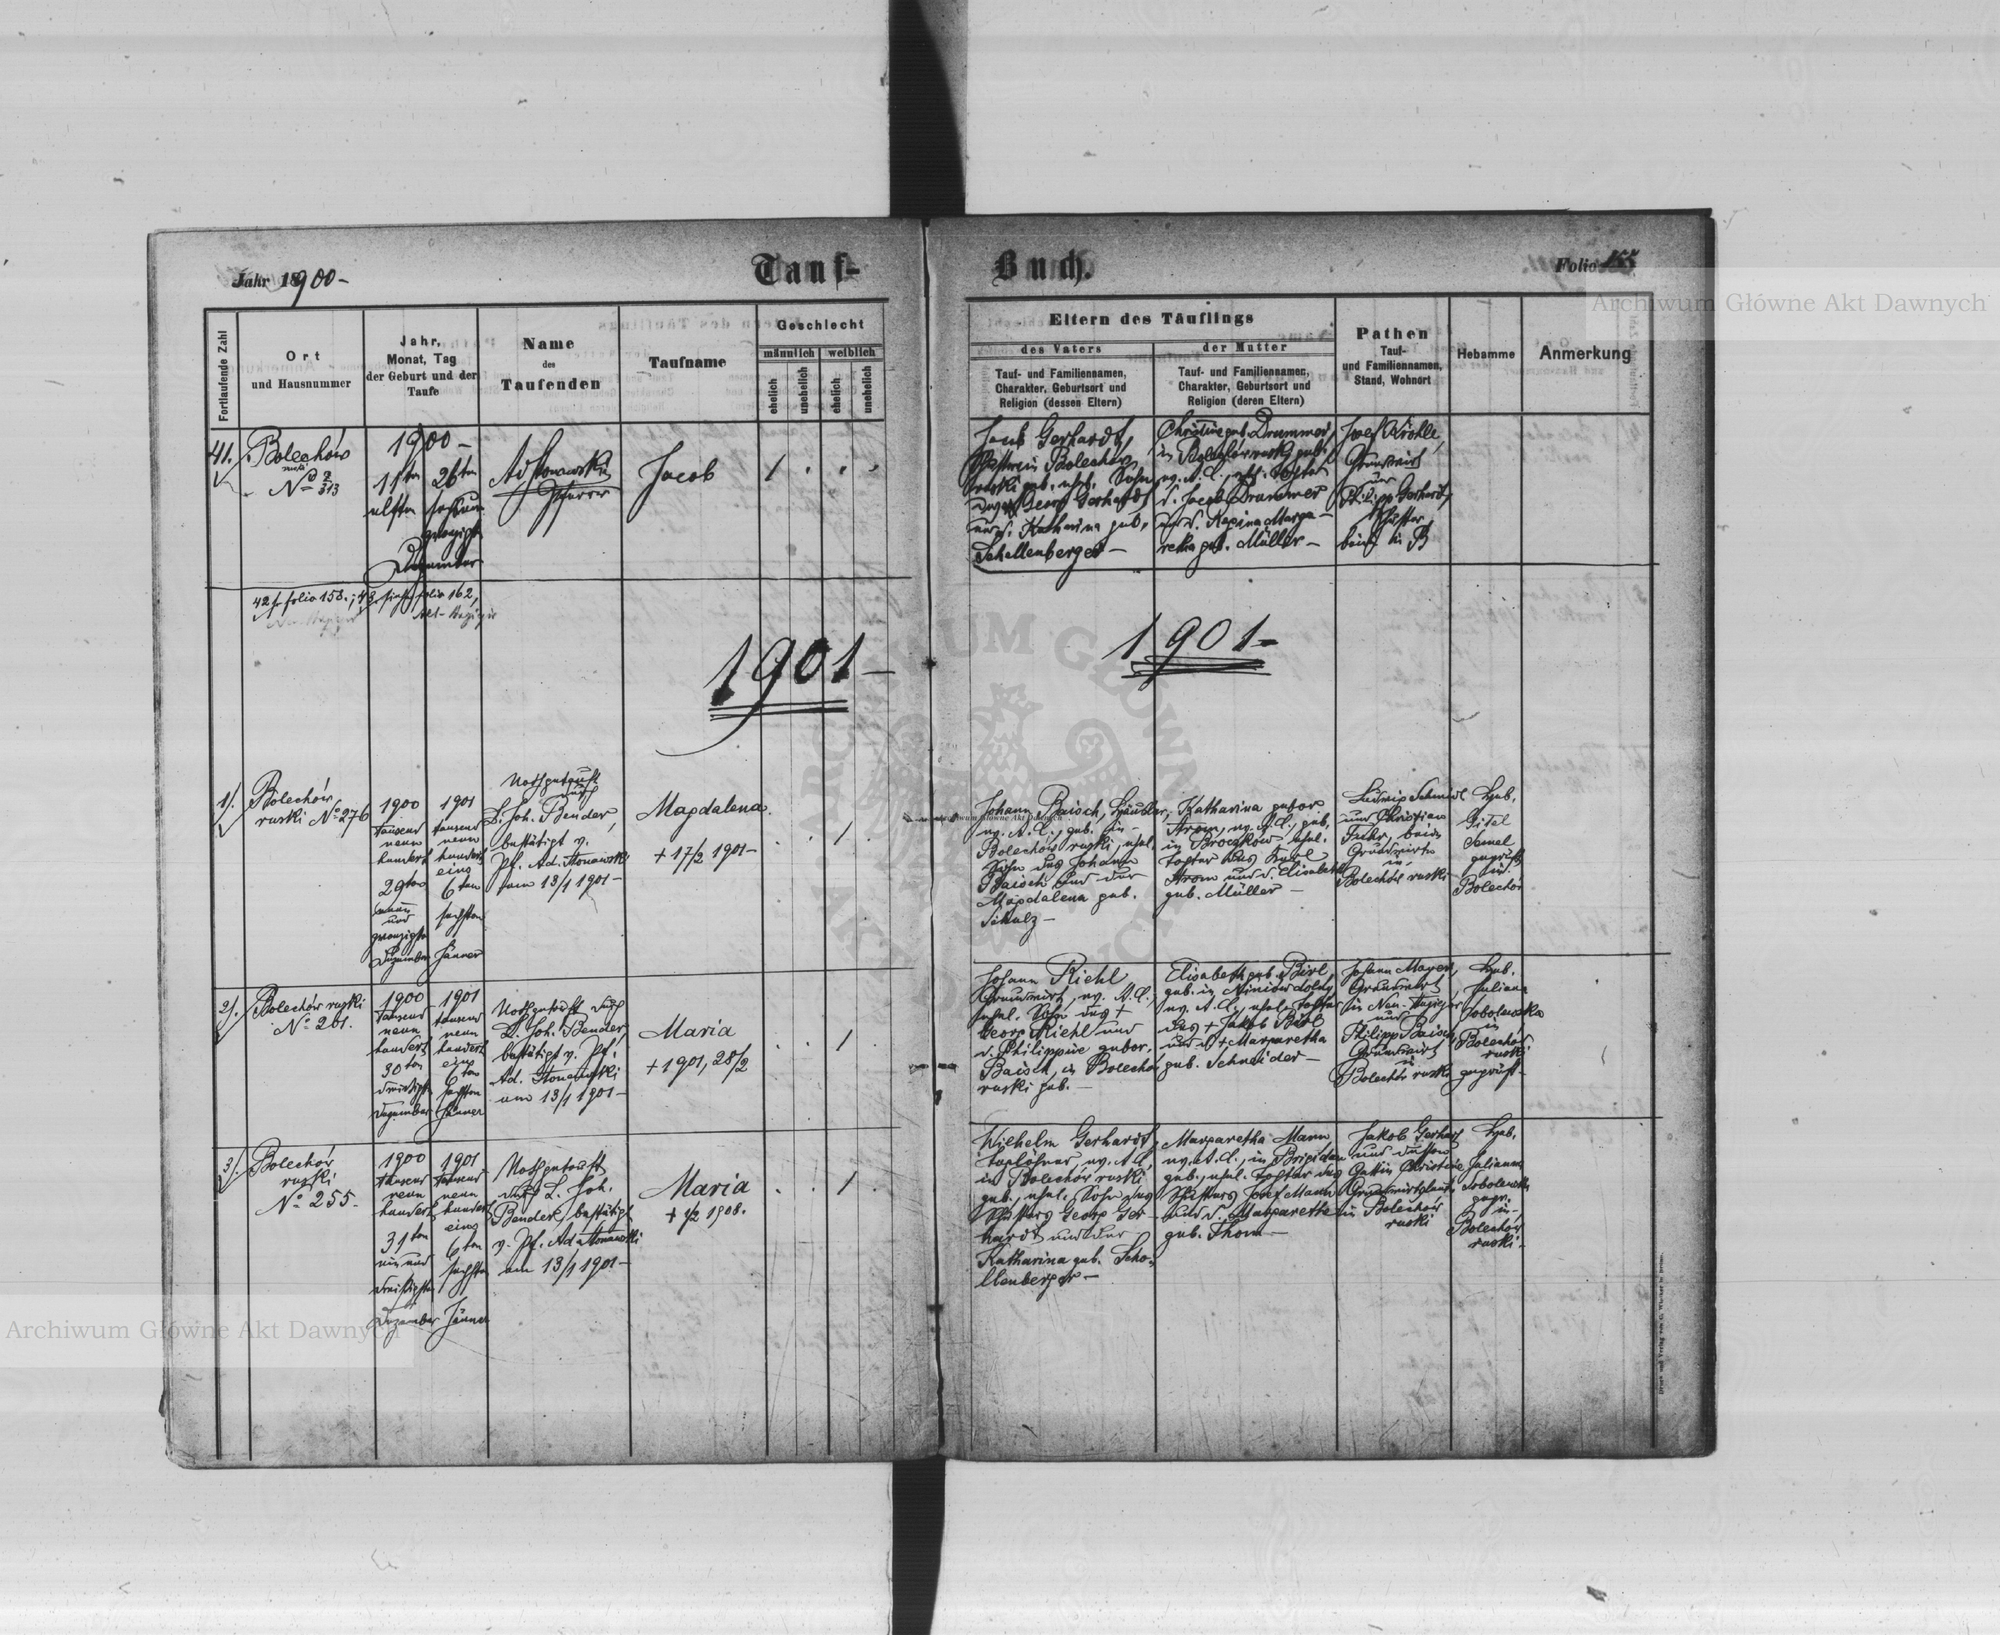 Jahr 1900 –
Tauf-
Buch.
Folio 155
Archiwum Główne Akt Dawnych
Fortlaufende Zahl
Ort
und Hausnummer
Jahr,
Monat, Tag
der Geburt und der
Taufe
Name
des
Taufenden
Taufname
Geschlecht
männlich
weiblich
ehelich
unehelich
ehelich
unehelich
Eltern des Täuflings
des Vaters
Tauf- und Familiennamen,
Charakter, Geburtsort und
Religion (dessen Eltern)
der Mutter
Tauf- und Familiennamen,
Charakter, Geburtsort und
Religion (deren Eltern)
Pathen
Tauf-
und Familiennamen,
Stand, Wohnort
Hebamme
Anmerkung
41.
Bolechów
ruski
No 313
1900 –
11ten 26ten
elften sechsund
zwanzigst
Dezember
Ad Stonawski
Pfarrer
Jacob
Jacob Gerhardt,
in Bolechów
ruski geb. ehel. Sohn
des Georg Gerhardt
und d. Katharina geb.
Schellenberger –
Christine geb. Drummer,
in Bolechów ruski geb.
ev. A. C., ehel. Tochter
d. Jacob Drummer
und d. Regina Marga-
retha geb. Müller –
Josef Kröhle,
Grundwirt
und
Philipp Gerhardt,
Schuster
beide in B
42 s. folio 158.; 43 siehe folio 162,
1901 –
1901 –
1).
Bolechów
ruski No 276
1900
tausend
neun
hundert
29ten
neun
und
zwanzigste
Dezember
1901
tausend
neun
hundert
eins
6ten
sechsten
Jänner
Nothgetauft
durch
L. Joh. Bender,
bestätigt v.
Pf. Ad. Stonawski
am 13/1 1901 –
Magdalena
+ 17/2 1901 –
Johann Baisch, Häusler,
ev. A. C., geb. in
Bolechów ruski, ehel.
Sohn des Johann
Baisch und der
Magdalena geb.
Schulz –
Katharina gebor
Arom, ev. A. C., geb.
in Broczków, ehel.
Tochter des Karl
Arom und d. Elisabeth
geb. Müller –
Ludwig Schmidl
und Christian
Fuhr, beide
Grundwirte
in
Bolechów ruski
Heb.
Gitel
Semel
geprüft
in
Bolechów
2).
Bolechów ruski
No 261.
1900
tausend
neun
hundert
30ten
dreißigste
Dezember
1901
tausend
neun
hundert
eins
6ten
sechsten
Jänner
Nothgetauft durch
L. Joh. Bender,
bestätigt v. Pf.
Ad. Stonawski
am 13/1 1901 –
Maria
+ 1901, 28/2
Johann Riehl
Grundwirt, ev. A. C.,
ehel. Sohn des +
Georg Riehl und
d. Philippine gebor.
Baisch, in Bolechów
ruski geb. –
Elisabeth geb. Birl,
geb. in
ev. A. C., ehel. Tochter
des + Jakob Birl
und d. + Margaretha
geb. Schneider –
Johann Mayer,
Grundwirt
in Neu-
und
Philipp Baisch,
Grundwirt
in
Bolechów ruski
Heb.
Juliana
Sobolewska
in
Bolechów
ruski
geprüft –
3).
Bolechów
ruski
No 255 –
1900
tausend
neun
hundert
31ten
ein und
dreißigsten
Dezember
1901
tausend
neun
hundert
eins
6ten
sechsten
Jänner
Nothgetauft
durch L. Joh.
Bender, bestätigt
v. Pf. Ad Stonawski
am 13/1 1901 –
Maria
+ 1/2 1908.
Wilhelm Gerhardt,
Taglöhner, ev. A. C.,
in Bolechów ruski
geb., ehel. Sohn des
Schusters Georg Ger
hardt und der
Katharina geb. Sche-
llenberger –
Margaretha Mann
ev. A. C., in Brigidau
geb., ehel. Tochter des
Schusters Josef Mann
und d. Margarette
geb. Thom –
Jakob Gerhard
und dessen
Gattin Christine
Grundwirtsleute
in Bolechów
ruski
Heb.
Julianna
Sobolewska
gepr.
in
Bolechów
ruski.
Archiwum Główne Akt Dawnych